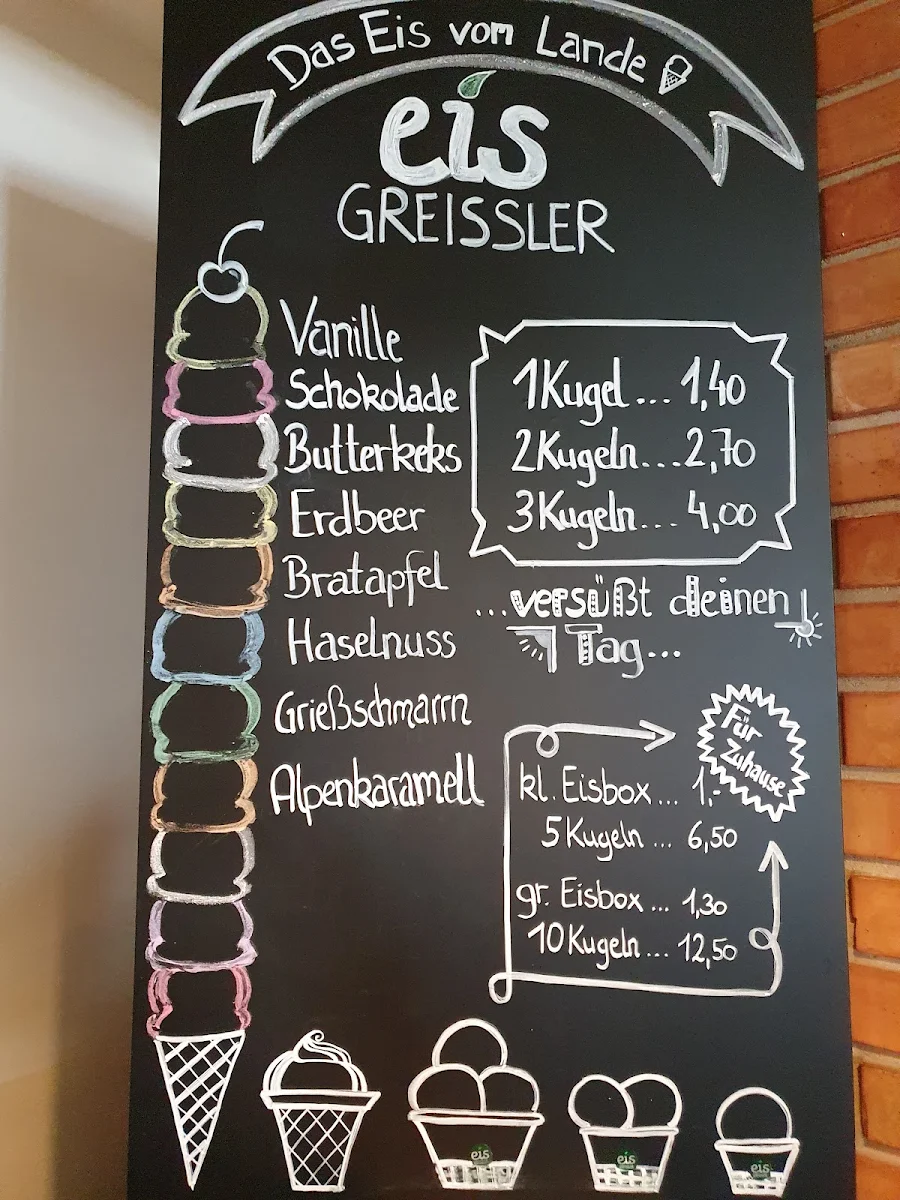 Das Eis vom Lande
eis
GREISSLER
Vanille
Schokolade
Butterkeks
Erdbeer
Bratapfel
Haselnuss
Grießschmarrn
Alpenkaramell
1 Kugel... 1,40
2 Kugeln... 2,70
3 Kugeln.... 4,00
...versüßt deinen
Tag...
Für
Zuhause
kl. Eisbox... 1,-
5 Kugeln ... 6,50
gr. Eisbox ... 1,30
10 Kugeln ... 12,50
eis
eis
eis